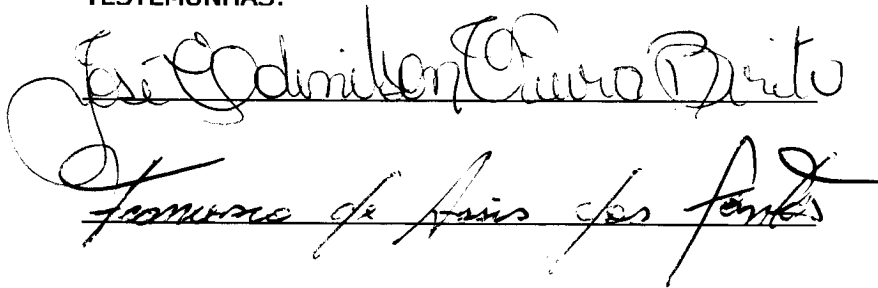 TESTEMUNHAS:
José Edmilson Vieira Brito
Francisco de Assis dos Santos